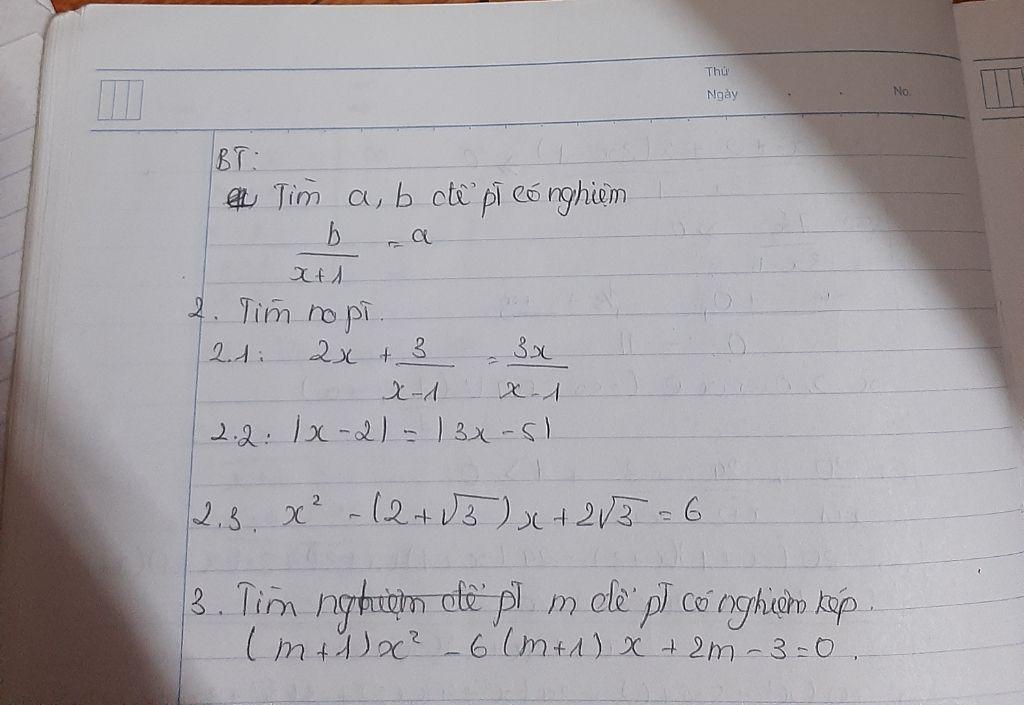 Thứ
Ngày . . No.
BT:
Tìm a, b để pT có nghiệm
b/(x+1) = a
2. Tìm no pT.
2.1: 2x + 3/(x-1) = 3x/(x-1)
2.2: |x-2| = |3x-5|
2.3. x² - (2+√3)x + 2√3 = 6
3. Tìm nghiệm để pT m để pT có nghiệm kép.
(m+1)x² - 6(m+1)x + 2m-3=0.